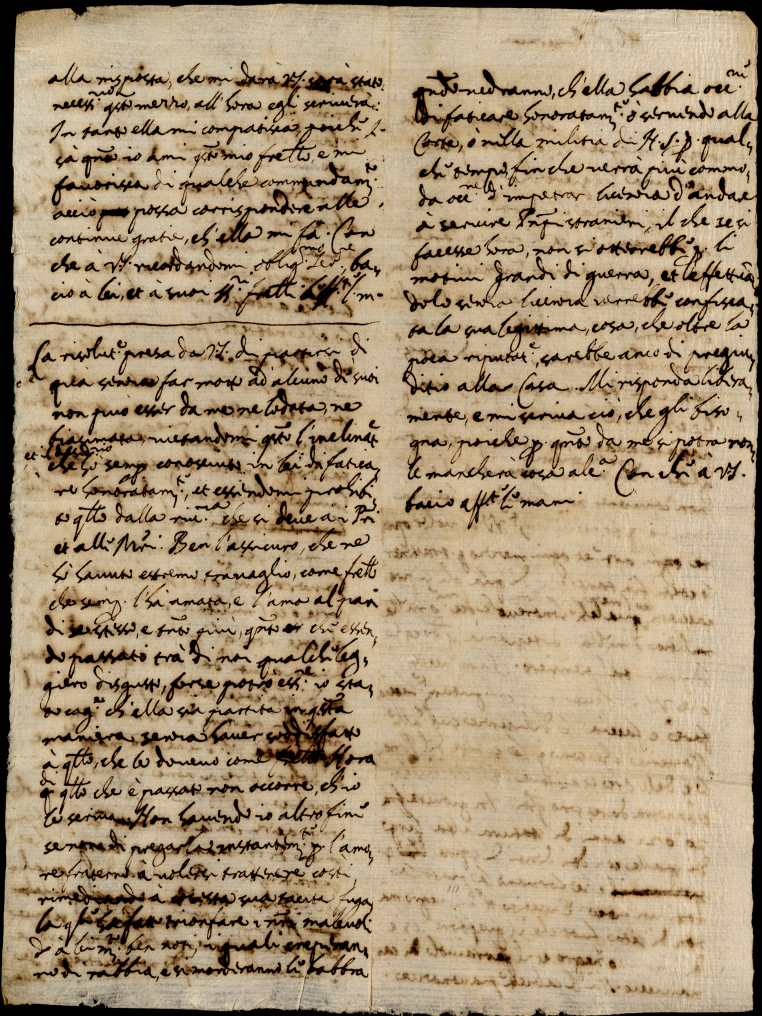 alla risposta, che mi darà V.S. sarà stato
necess.o q.sto mezzo, all'hora egli scriverà.
In tanto ella mi compatisca, poiche
sà q.nto io ami q.sto mio fr̃ello, e mi
favorisca di qualche commandam.to
acciò possa corrispondere alle
continue gratie, ch'ella mi fà. Con
che à V.S. ricordandomi oblig.mo ser.re ba=
cio à lei, et à suoi ss.ri fr̃elli aff.te l. m.
La risolut.e presa da V.S. di partirsi di
qua senza far motto ad alcuno de suoi
non può esser da me ne lodata, ne
biasimata, vietandomi q.sto l'inclinat.e
et il desiderio
che hò semp. conosciuto in lei di fatica=
re honoratam.te, et essendomi prohibi=
to q.llo dalla riv.za che si deve a i P̃ri
et alle M̃ri. Ben l'assicuro, che ne
hò havuto estremo travaglio, come fr̃ello
che semp. l'hà amata, e l'amo al pari
di se stesso, e tanto più, q.nto che essen=
do passato trà di noi qualche leg=
giero disgusto, forse potrò ess.re io sta=
to cag.e ch'ella sia partita in q.sta
maniera senza haver soddisfatto
à q.llo, che le dovevo come Hora
di q.llo che è passato non occorre, ch'io
le scriva. Non havendo io altro fine
se non di pregarla instantem.te p. l'amo=
re fraterno à volersi trattenere costì,
rimediando à questa sua tacita fuga
la q.le hà fatto trionfare i ñri malevoli
à lei m.to ben noti, i quali creperan=
no di rabbia, e si morderanno le labbra
q.ndo vedranno, ch'ella habbia occ.ne
di faticare honoratam.te ò servendo alla
Corte, ò nella militia di N. S. p. qual=
che tempo, fin che verrà più commo=
da occ.ne d'impetrar licenza d'andare
à servire Prñpi stranieri, il che se si
facesse hora, non si otterrebbe p. li
motivi grandi di guerra, et effettuan=
dolo senza licenza verrebbe confisca=
ta la sua legittima, cosa, che oltre la
poca riputat.e, sarebbe anco di pregiu=
ditio alla Casa. Mi risponda libera=
mente, e mi scriva ciò, che gli biso=
gna, poiche p. q.nto da me si potrà non
le mancherà cosa alc.a Con che à V.S.
bacio aff.te le mani